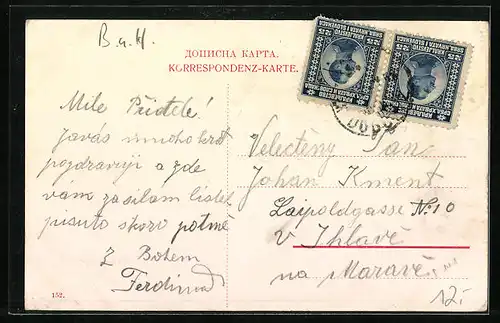 B. u. H.
ДОПИСНА КАРТА.
KORRESPONDENZ-KARTE.
Mile Přátele!
Javás mnoho krat
pozdravuji a zde
vám zasilam listek
pisuto skoro potmě
Z Bohem
Ferdinand
Velectěny Pan
Johan Kment
Laipoldgasse No 10
v Ihlavě
na Maravě
152.
12.-